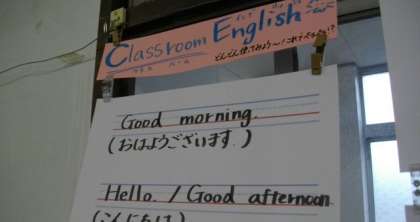 Classroom English
クラス ルーム
どんどん使ってみよう〜!
Good morning.
(おはようございます.)
Hello. / Good afternoon.
(こんにちは.)